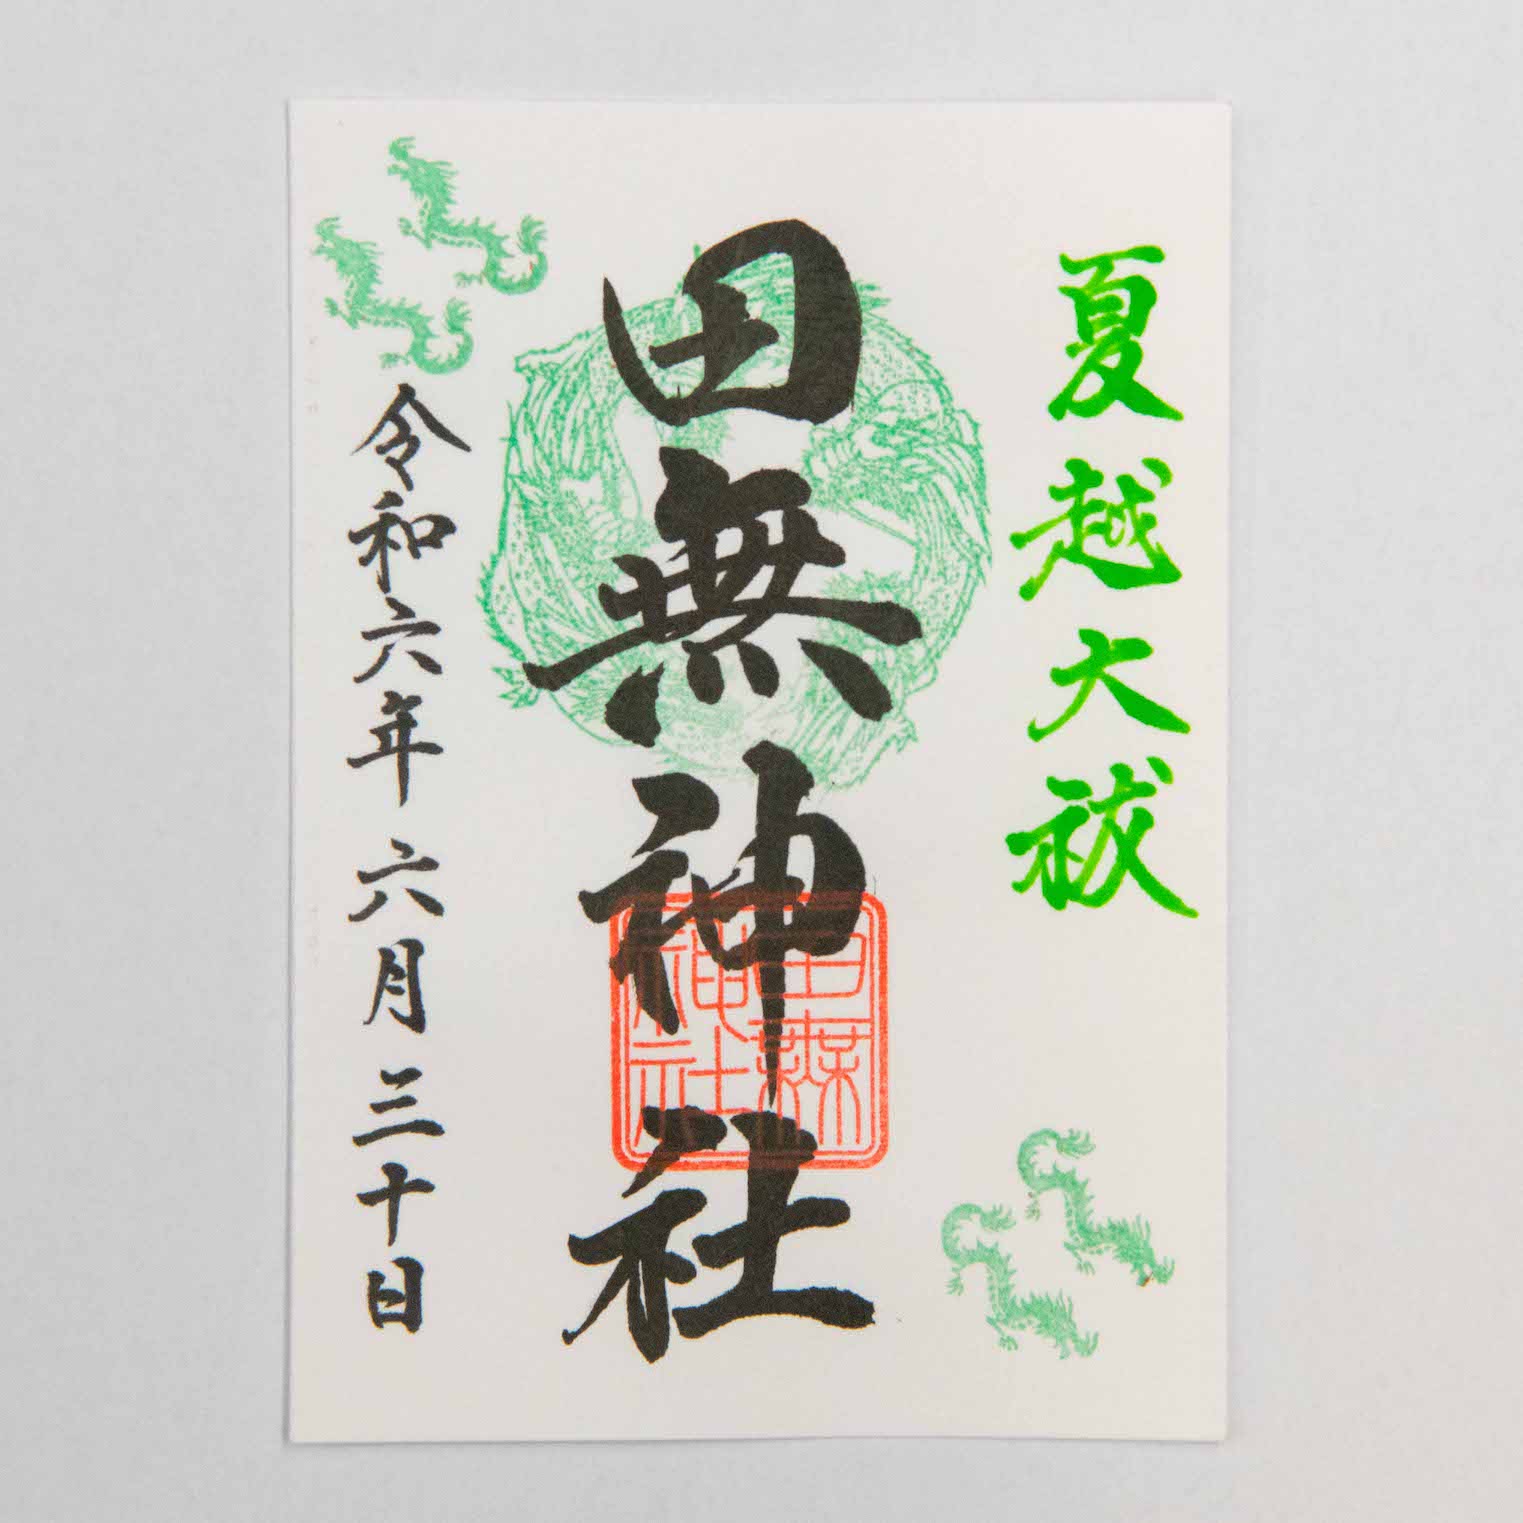 夏越大祓
田無神社
田無
神社
令和六年六月三十日